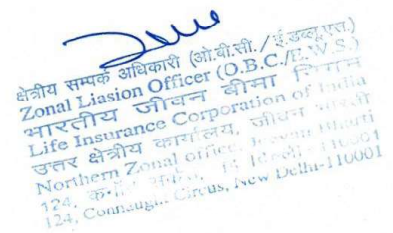 क्षेत्रीय सम्पर्क अधिकारी (ओ.बी.सी./ई.डब्लू.एस.)
Zonal Liasion Officer (O.B.C./E.W.S.)
भारतीय जीवन बीमा निगम
Life Insurance Corporation of India
उत्तर क्षेत्रीय कार्यालय, जीवन भारती
Northern Zonal office, Jeevan Bharti
124, 110001
124, Connaught Circus, New Delhi-110001